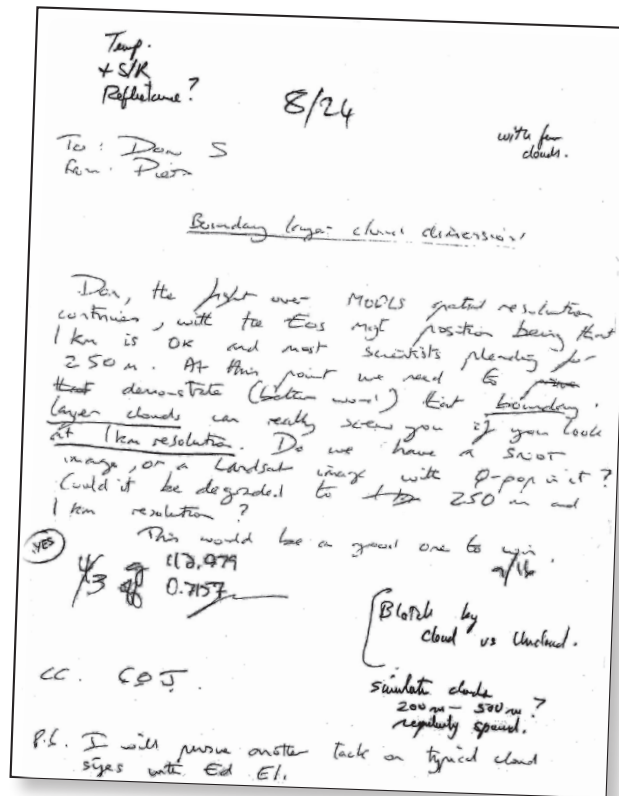 Temp.
+ S/R
Reflectance?
8/24
with few
clouds.
To: Don S
From: Piers
Boundary layer cloud dimensions
Don, the fight over MODIS spatial resolution
continues, with the Eos mgt position being that
1 km is OK and most scientists pleading for
250 m. At this point we need to
that demonstrate (better word!) that boundary
layer clouds can really screw you if you look
at 1 km resolution. Do we have a SPOT
image, or a Landsat image with P-pop in it?
Could it be degraded to 250 m and
1 km resolution?
This would be a good one to win.
YES
113,979
0.7157
Blotch by
cloud vs Uncloud.
cc. COJ.
simulate clouds
200 m – 500 m?
regularly spaced.
P.S. I will pursue another tack on typical cloud
sizes with Ed El.